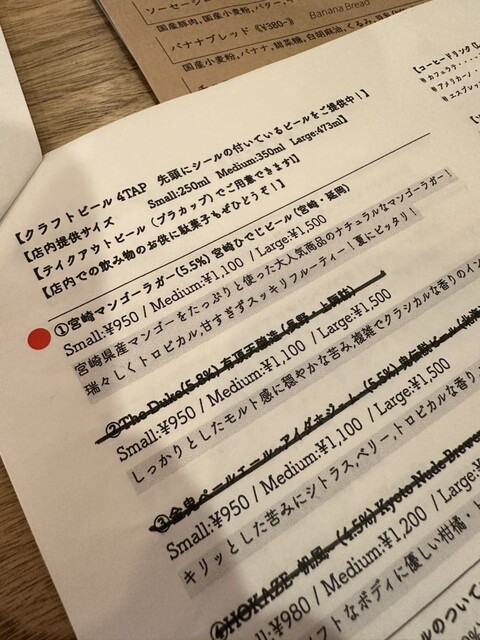 ソーセージ
国産豚肉,国産小麦粉,バター,
バナナブレッド 《¥380-》 Banana Bread
国産小麦粉,バナナ,甜菜糖,白胡麻油,くるみ,
【コーヒードリンク
カフェラテ・・・
アメリカーノ・
エスプレッ
【クラフトビール 4TAP 先頭にシールの付いているビールをご提供中!】
【店内提供サイズ Small:250ml Medium:350ml Large:473ml】
【テイクアウトビール（プラカップ）でご用意できます!】
【店内での飲み物のお供に駄菓子もぜひどうぞ!】
①宮崎マンゴーラガー(5.5%) 宮崎ひでじビール(宮崎・延岡)
Small:¥950 / Medium:¥1,100 / Large:¥1,500
宮崎県産マンゴーをたっぷりと使った大人気商品のナチュラルなマンゴーラガー!
瑞々しくトロピカル,甘すぎずスッキリフルーティー!夏にピッタリ!
②The Duke(5.8%)
Small:¥950 / Medium:¥1,100 / Large:¥1,500
しっかりとしたモルト感に穏やかな苦み,複雑でクラシカルな香りの
③金鬼ペールエール
Small:¥950 / Medium:¥1,100 / Large:¥1,500
キリッとした苦みにシトラス,ベリー,トロピカルな香り
④HOKAZE (4.5%) Kyoto Nude Brewer
Small:¥980 / Medium:¥1,200 / Large:
フトなボディに優しい柑橘・